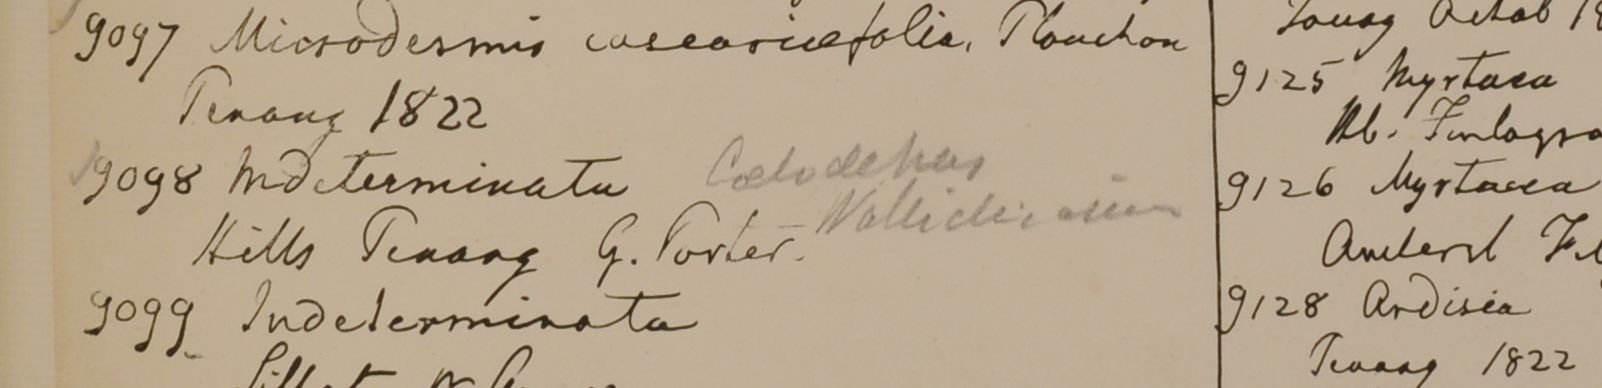 9097 Microdesmis casearicefolia. Planchon
Penang 1822
9098 Indeterminata Coelodepas
Wallichianum
Hills Penang G. Porter.
9099 Indeterminata
Sillet
9125 Myrtacea
Hb. Finlayso
9126 Myrtacea
Amherst
9128 Ardisia
Penang 1822